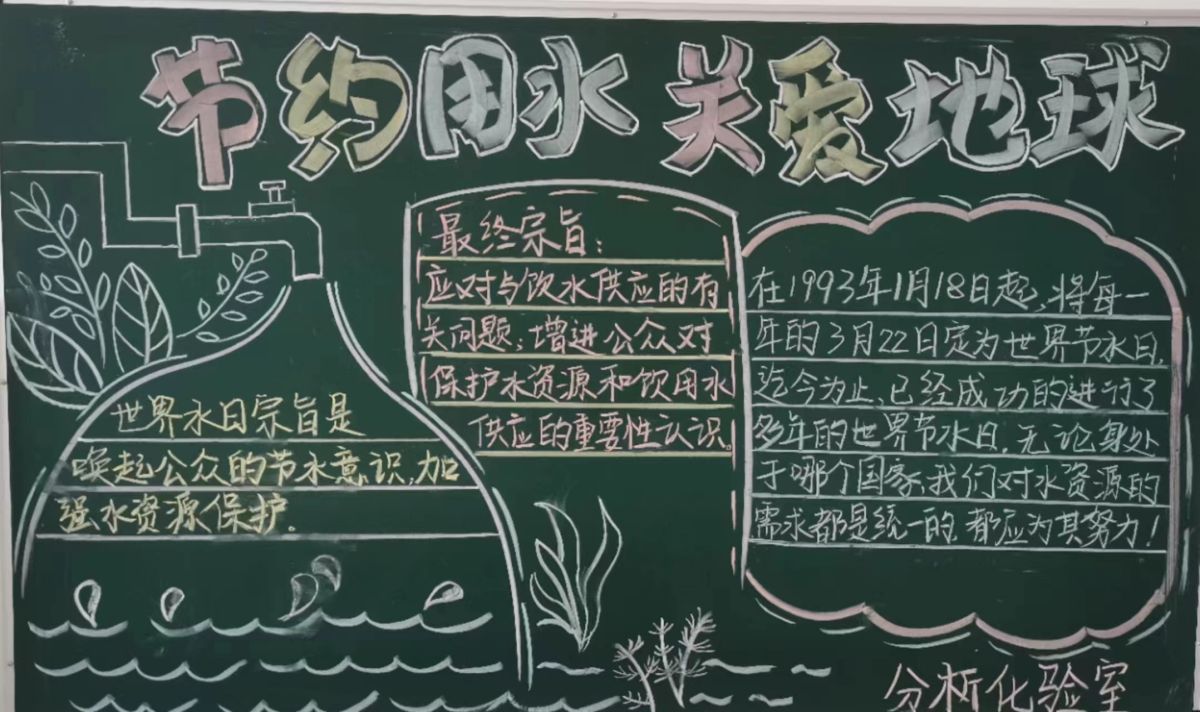 节约用水 关爱地球
世界水日宗旨是
唤起公众的节水意识,加
强水资源保护.
最终宗旨:
应对与饮水供应的有
关问题;增进公众对
保护水资源和饮用水
供应的重要性认识。
在1993年1月18日起,将每一
年的3月22日定为世界节水日,
迄今为止,已经成功的进行了
多年的世界节水日.无论身处
于哪个国家,我们对水资源的
需求都是统一的.都应为其努力!
分析化验室